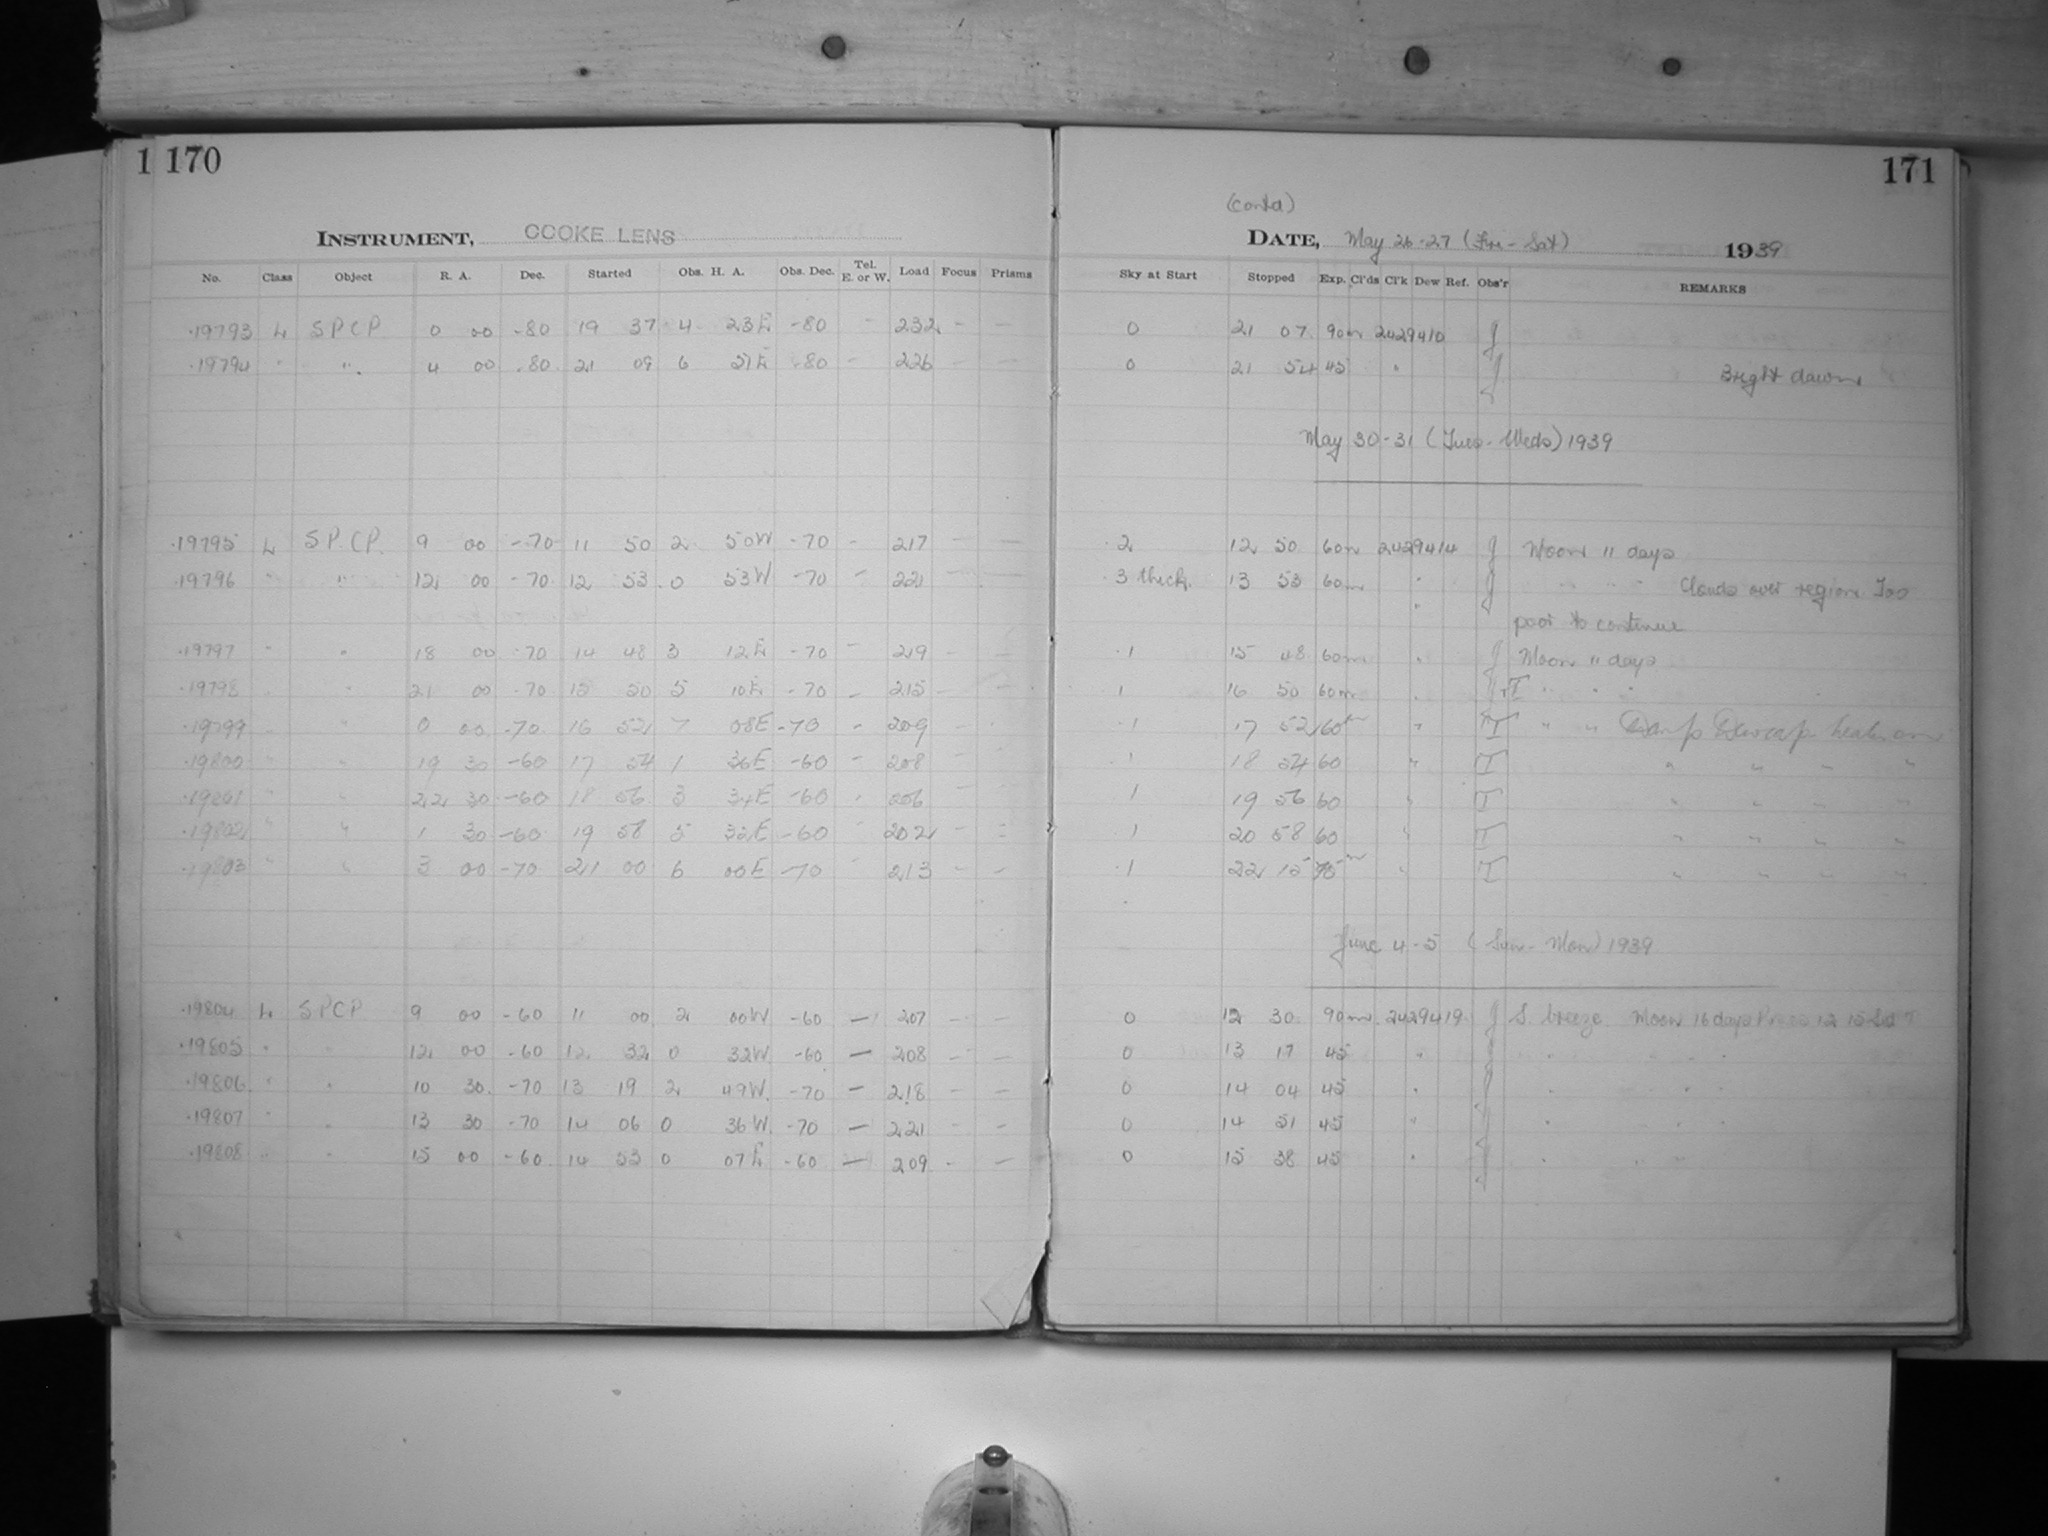 1 170
INSTRUMENT, COOKE LENS
No. Class Object R. A. Dec. Started Obs. H. A. Obs. Dec. Tel. E. or W. Load Focus Prisms
19793 L SPCP 0 00 -80 19 37 4 23E -80 - 232 - -
19794 " " 4 00 -80 21 09 6 51E -80 - 226 - -
19795 L S.P.C.P. 9 00 -70 11 50 2 50W -70 - 217 - -
19796 " " 12 00 -70 12 53 0 53W -70 - 221 - -
19797 " " 18 00 -70 14 48 3 12E -70 - 219 - -
19798 " " 21 00 -70 15 50 5 10E -70 - 215 - -
19799 " " 0 00 -70 16 52 7 08E -70 - 209 - -
19800 " " 19 30 -60 17 54 1 36E -60 - 208 - -
19801 " " 22 30 -60 18 56 3 34E -60 - 206 - -
19802 " " 1 30 -60 19 58 5 32E -60 - 202 - -
19803 " " 3 00 -70 21 00 6 00E -70 - 213 - -
19804 L SPCP 9 00 -60 11 00 2 00W -60 - 207 - -
19805 " " 12 00 -60 12 32 0 32W -60 - 208 - -
19806 " " 10 30 -70 13 19 2 49W -70 - 218 - -
19807 " " 13 30 -70 14 06 0 36W -70 - 221 - -
19808 " " 15 00 -60 14 53 0 07E -60 - 209 - -
171
(contd)
DATE, May 26-27 (Fri - Sat) 1939
Sky at Start Stopped Exp. Cl'ds Cl'k Dew Ref. Obs'r REMARKS
0 21 07 90m 2429410 J
0 21 54 45 " J Bright dawn
May 30-31 (Tues - Weds) 1939
2 12 50 60m 2429414 J Moon 11 days
3 thick 13 53 60m " J " " " Clouds over region Too
poor to continue
1 15 48 60m " J Moon 11 days
1 16 50 60m " J+T " " "
1 17 52 60m " T " " Damp Dewcap heater on
1 18 54 60 " T " " " "
1 19 56 60 " T " " " "
1 20 58 60 " T " " " "
1 22 15 75m " T " " " "
June 4-5 (Sun - Mon) 1939
0 12 30 90m 2429419 J S. breeze Moon 16 days
0 13 17 45 " J " " " "
0 14 04 45 " J " "
0 14 51 45 " J " " " "
0 15 38 45 " J " " "